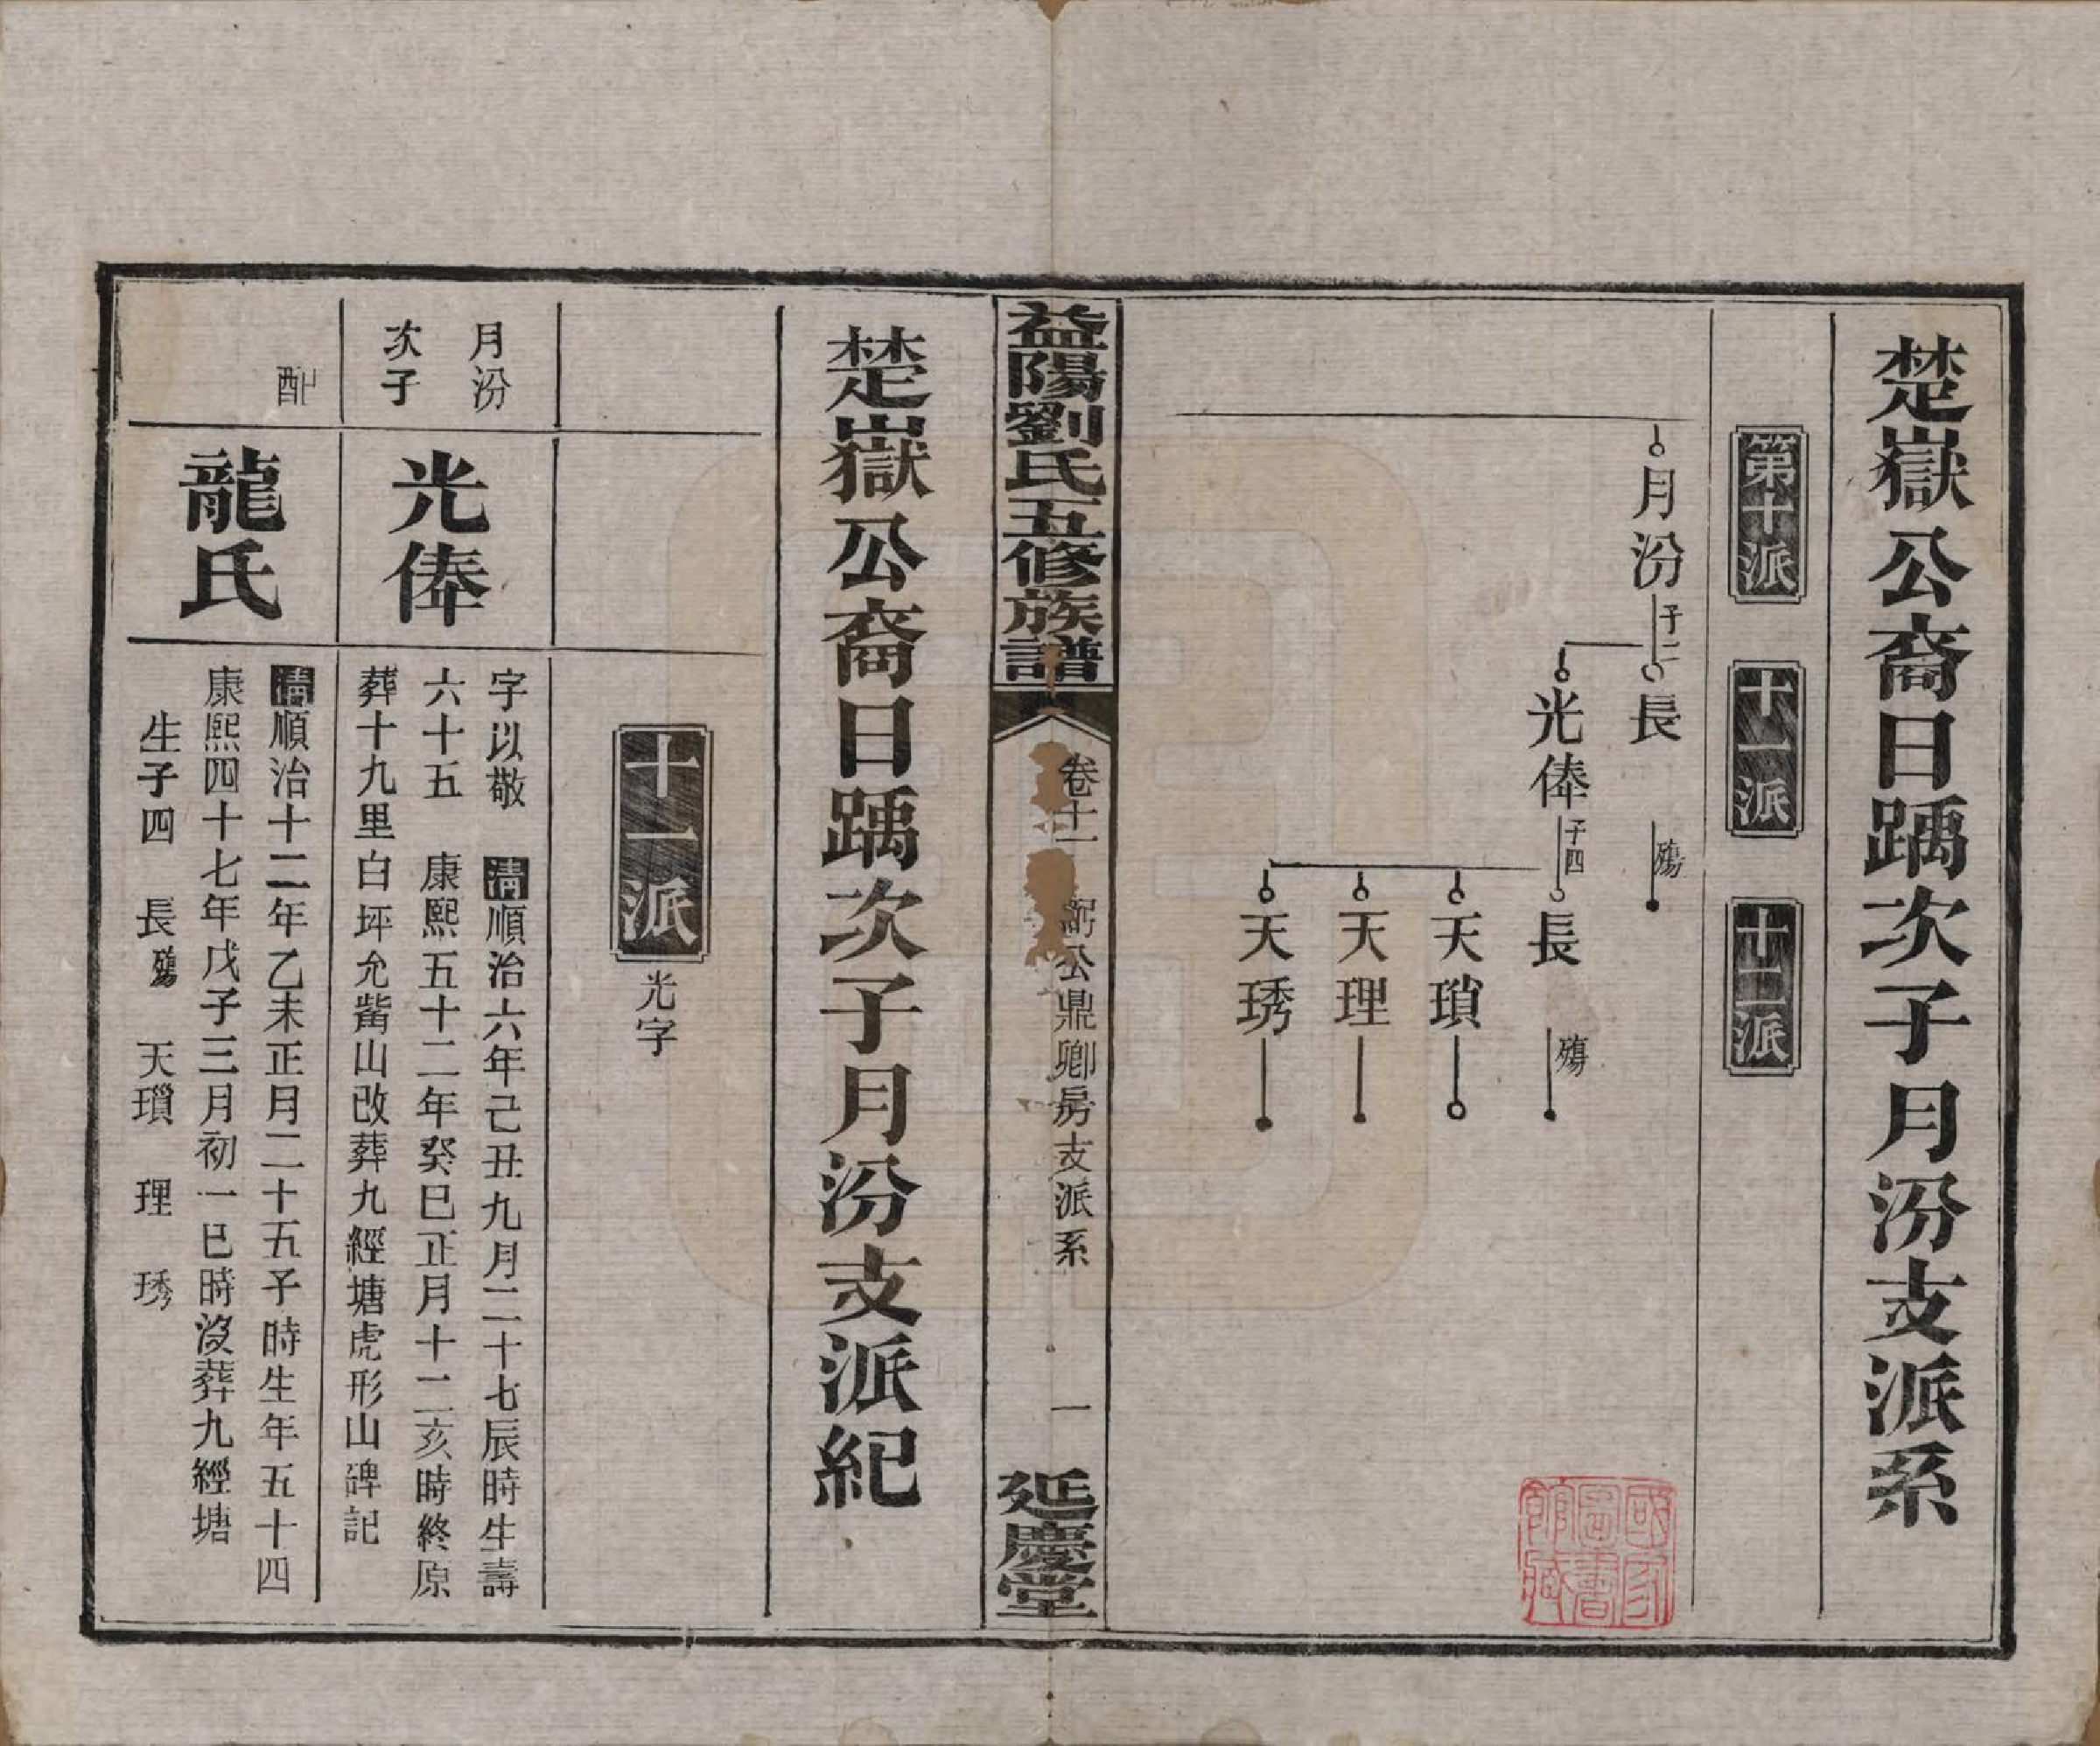 楚嶽公裔日踽次子月汾支派系
第十派
十一派
十二派
月汾 子二
長 殤
光俸 子四
長 殤
天瑣
天理
天琇
國家圖書館藏
益陽劉氏五修族譜
卷十一
公鼎卿房支派系
一
延慶堂
楚嶽公裔日踽次子月汾支派紀
十一派 光字
月汾
次子
光俸
字以敬 清順治六年己丑九月二十七辰時生壽
六十五 康熙五十二年癸巳正月十二亥時終原
葬十九里白坪允觜山改葬九經塘虎形山碑記
配
龍氏
清順治十二年乙未正月二十五子時生年五十四
康熙四十七年戊子三月初一巳時沒葬九經塘
生子四 長殤 天瑣 理 琇